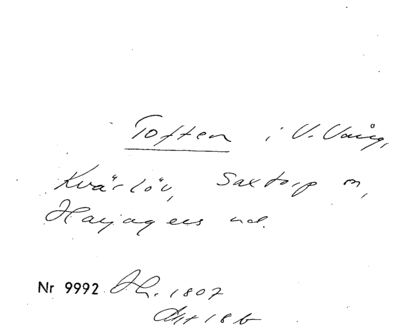 Toften i V. Vång,
Kvärlöv, Saxtorp sn,
Harjagers hd.
Nr 9992 Sk. 1807
Akt 18 b